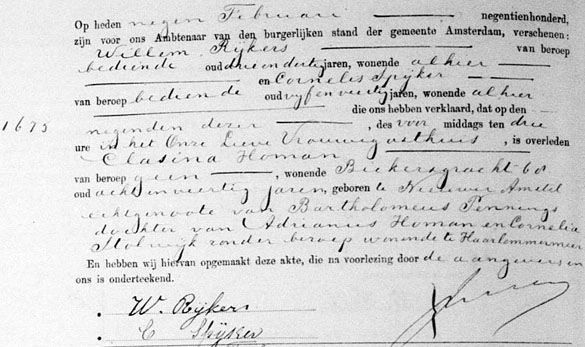 Op heden negen Februari negentienhonderd,
zijn voor ons Ambtenaar van den burgerlijken stand der gemeente Amsterdam, verschenen:
Willem Rijkers van beroep
bediende oud drieendertig jaren, wonende alhier
en Cornelis Spijker
van beroep bediende oud vyfenveertig jaren, wonende alhier
die ons hebben verklaard, dat op den
1675
negenden dezer, des voor middags ten drie
ure in het Onze Lieve Vrouwengasthuis, is overleden
Clasina Homan
van beroep geen, wonende Bickersgracht 60
oud achtenveertig jaren, geboren te Nieuwer Amstel
echtgenoote van Bartholomeus Pennings
dochter van Adrianus Homan en Cornelia
Stolwijk zonder beroep wonende te Haarlemmermeer
En hebben wij hiervan opgemaakt deze akte, die na voorlezing door de aangevers en
ons is onderteekend.
W. Rijkers
C Spijker